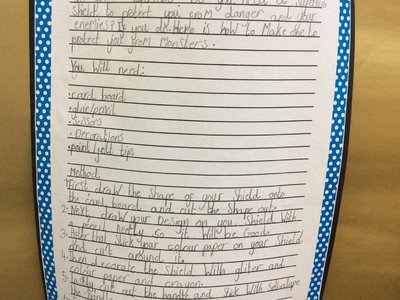 do you need a super
shield to protect you from danger and your
enemies? If you do. Here is how to make one to
protect you from monsters.
You will need:
• card board
• glue/pencil
• scissors
• Decorations
• paint/felt tips
Method
1. First draw the shape of your shield onto
the card board and cut the shape out.
2. Next draw your Design on you shield With
a pencil neatly so it will be Good.
3. After that stick your colour paper on your shield
and cut around it.
4. Then decorate the shield With gliter and
colour paper and crayon.
5. lastly cut out the handle and stick With sellotape
the handle